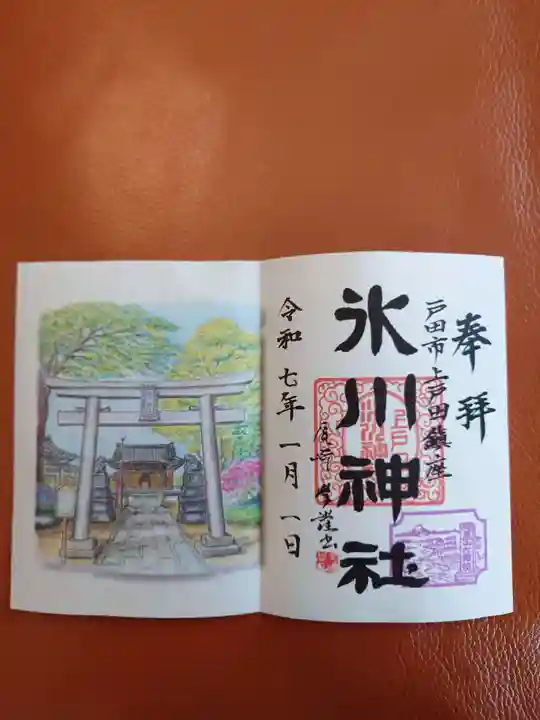 奉拝
戸田市上戸田鎮座
氷川神社
令和七年一月一日